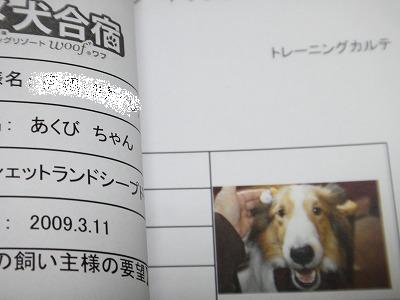 犬合宿
ッグリゾート woof®ワフ
様名:
トレーニングカルテ
: あくび ちゃん
シェットランドシープド
: 2009.3.11
の飼い主様の要望